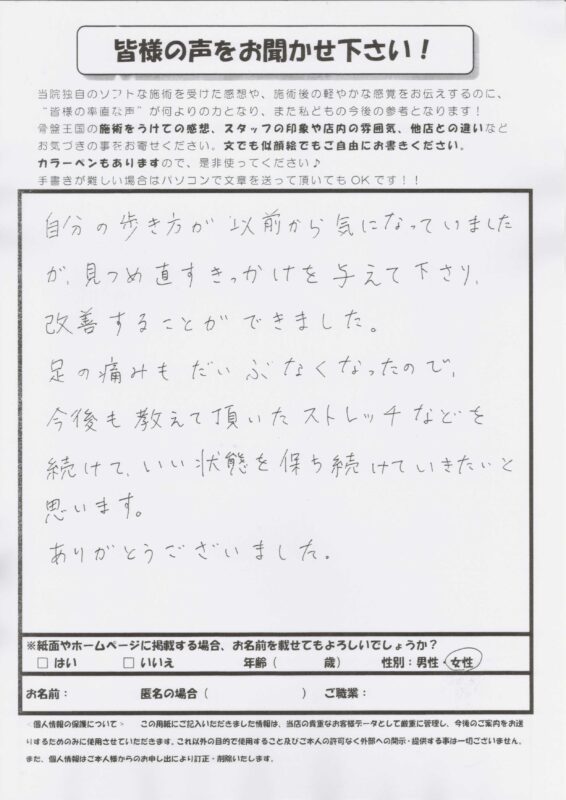 皆様の声をお聞かせ下さい！
当院独自のソフトな施術を受けた感想や、施術後の軽やかな感覚をお伝えするのに、
“皆様の率直な声”が何よりの力となり、また私どもの今後の参考となります！
骨盤王国の施術をうけての感想、スタッフの印象や店内の雰囲気、他店との違いなど
お気づきの事をお寄せください。文でも似顔絵でもご自由にお書きください。
カラーペンもありますので、是非使ってください♪
手書きが難しい場合はパソコンで文章を送って頂いてもOKです！！
自分の歩き方が以前から気になっていました
が、見つめ直すきっかけを与えて下さり、
改善することができました。
足の痛みもだいぶなくなったので、
今後も教えて頂いたストレッチなどを
続けて、いい状態を保ち続けていきたいと
思います。
ありがとうございました。
※紙面やホームページに掲載する場合、お名前を載せてもよろしいでしょうか？
□ はい　□ いいえ　年齢（　　歳）　性別：男性・女性
お名前：　匿名の場合（　　）　ご職業：
＜個人情報の保護について＞　この用紙にご記入いただきました情報は、当店の貴重なお客様データとして厳重に管理し、今後のご案内をお送
りするためのみに使用させていただきます。これ以外の目的で使用すること及びご本人の許可なく外部への開示・提供する事は一切ございません。
また、個人情報はご本人様からのお申し出により訂正・削除いたします。